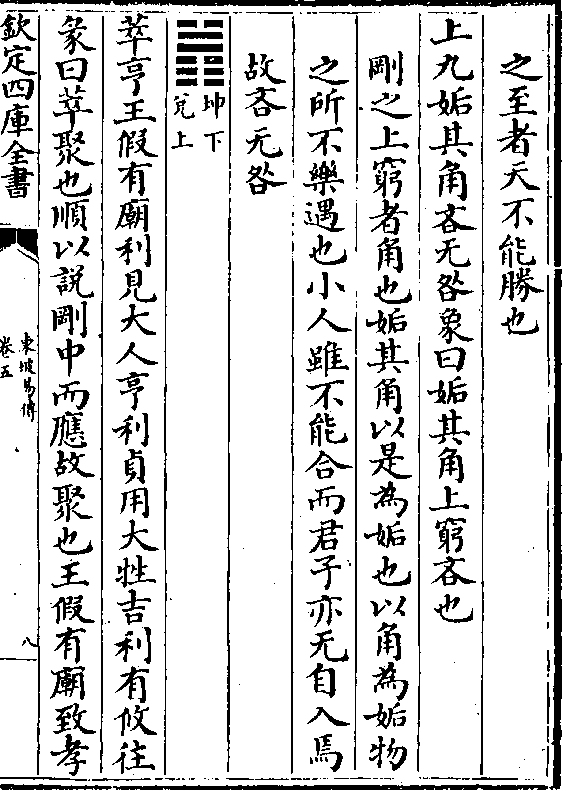 之至者天不能勝也
上九姤其角吝无咎象曰姤其角上窮吝也
剛之上窮者角也姤其角以是為姤也以角為姤物
之所不樂遇也小人雖不能合而君子亦无自入焉
故吝无咎
坤下
兌上
萃亨王假有廟利見大人亨利貞用大牲吉利有攸往
彖曰萃聚也順以說剛中而應故聚也王假有廟致孝
欽定四庫全書
東坡易傳
卷五
八